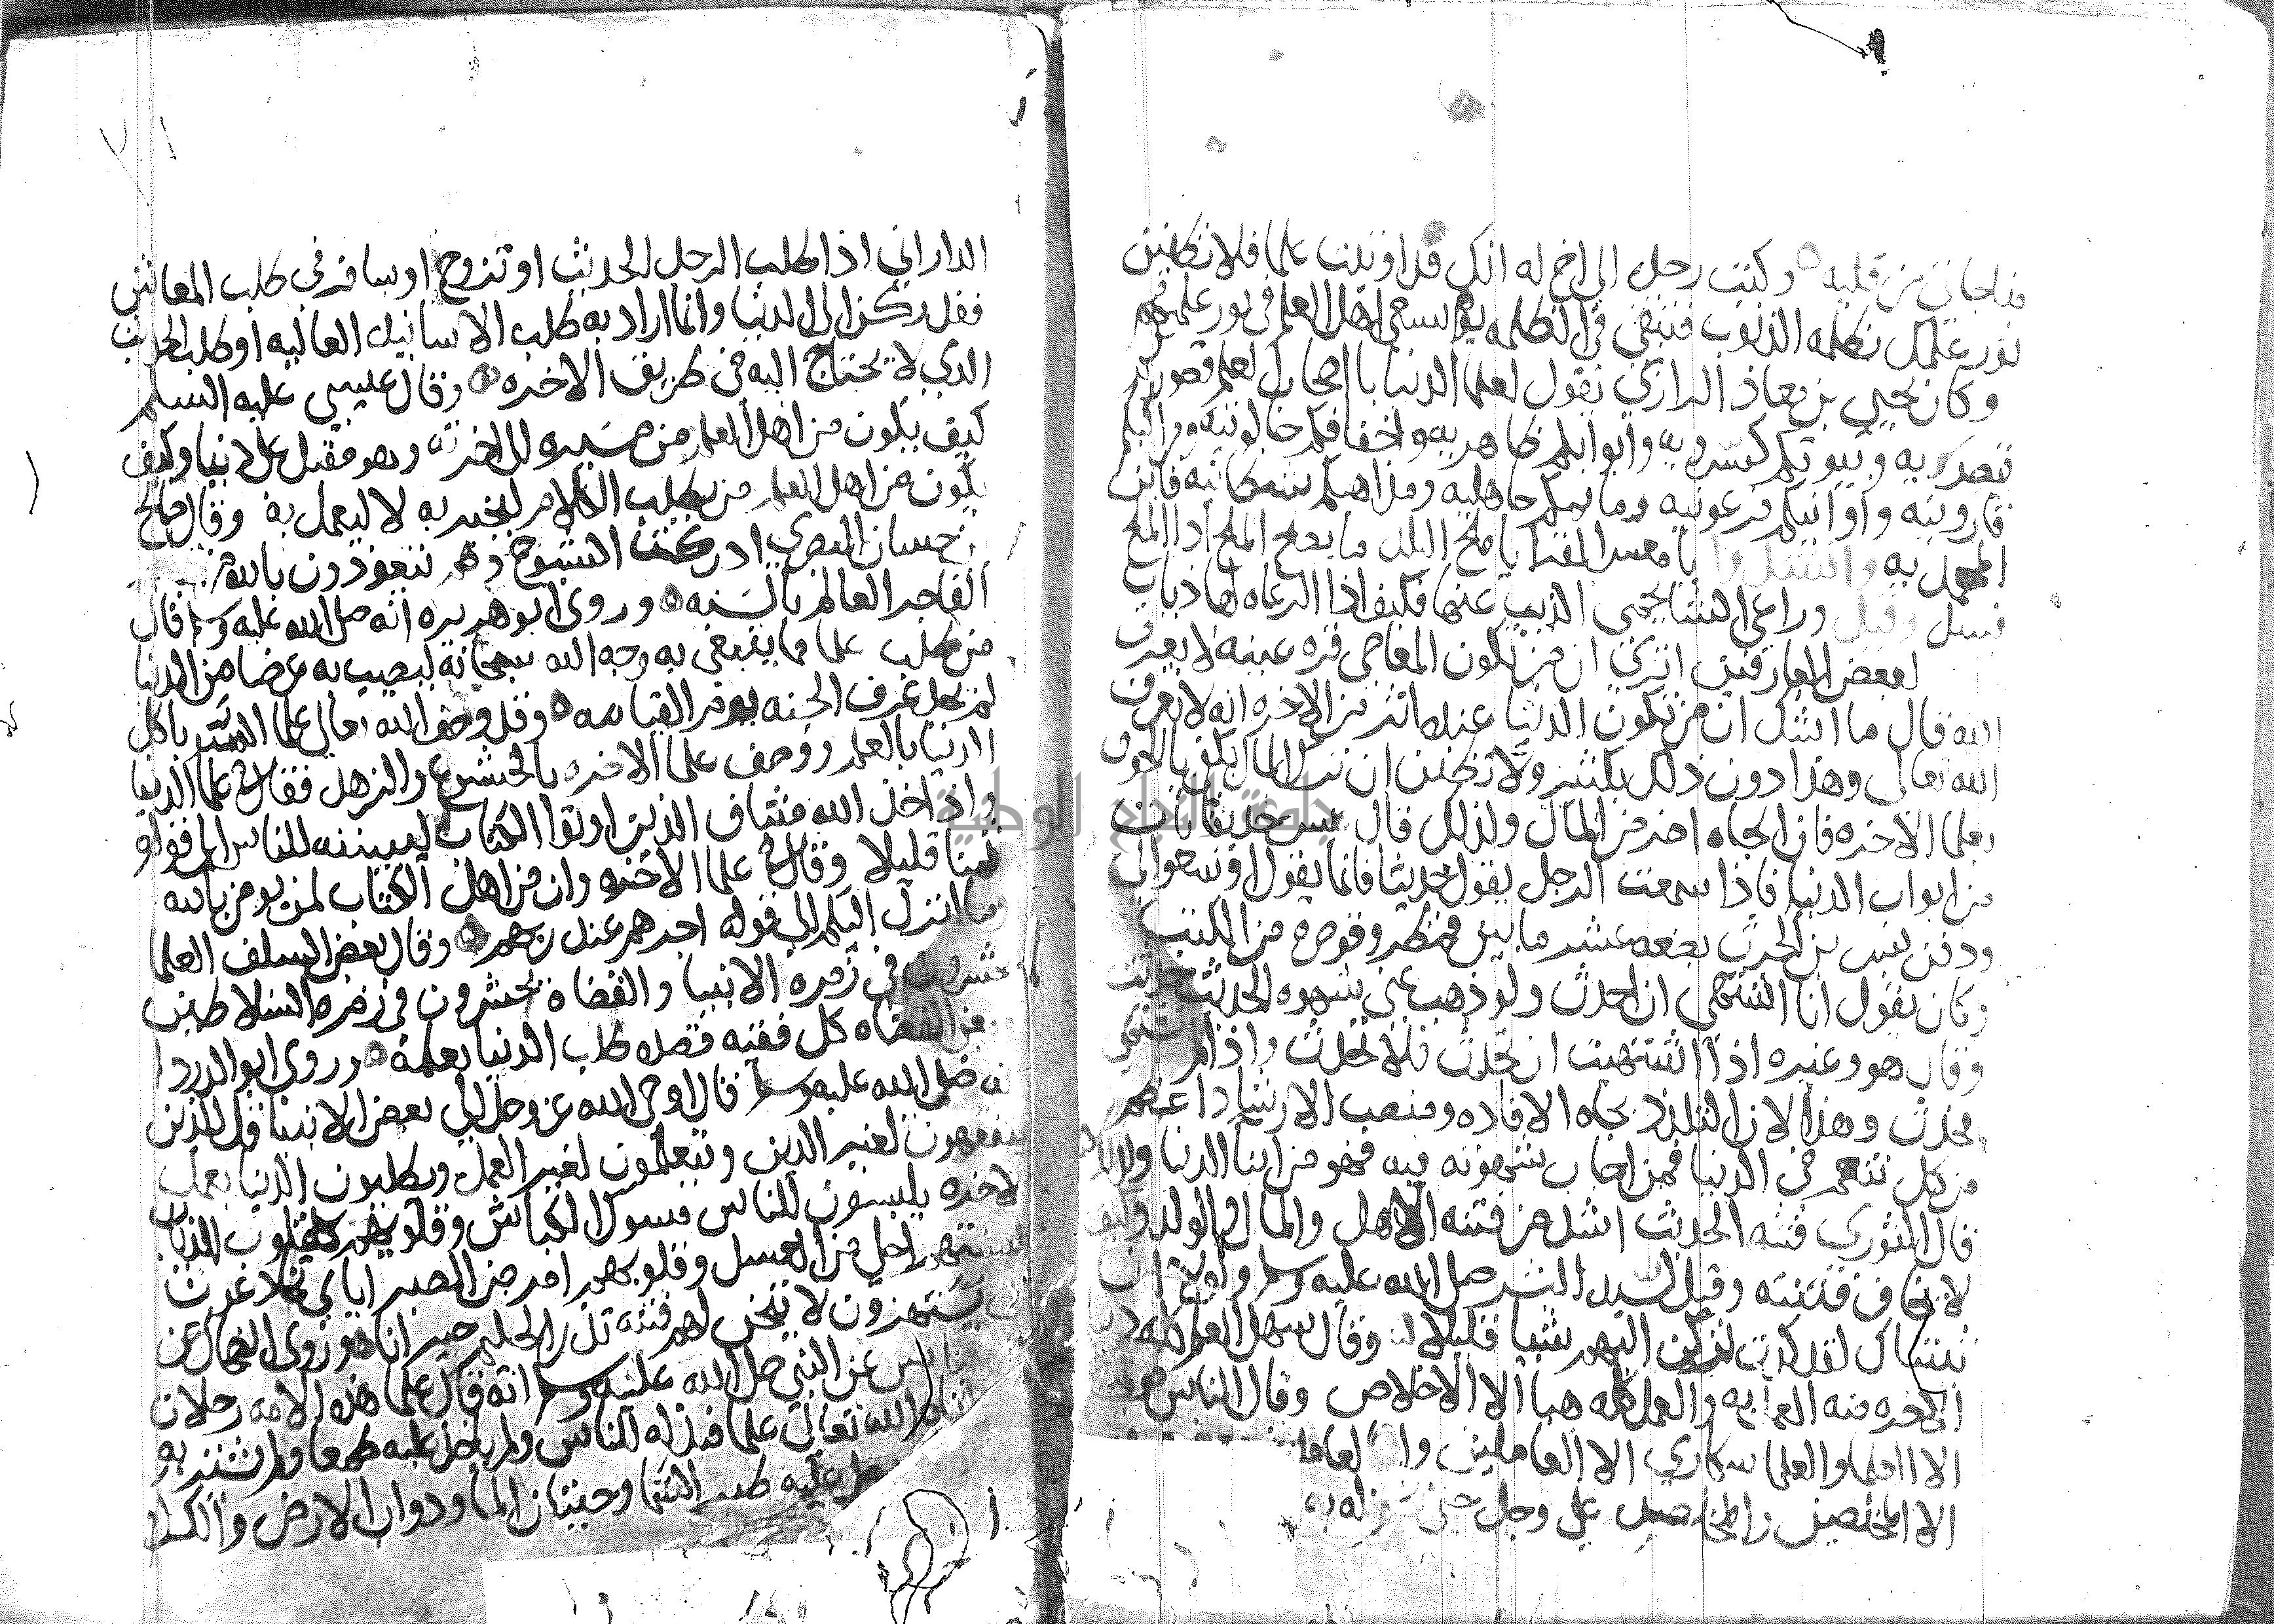 مناجاتي من قلبه وكتب رجل الى اخ له انك قد اوتيت علما فلا تطفين
نور علمك بظلمه الذنوب فتبقى في الظلمه يوم يسعى اهل العلم في نور علمهم
وكان يحيى بن معاذ الرازي يقول لعلما الدنيا يا اصحاب العلم قصوركم
قيصريه وبيوتكم كسرويه وابوابكم ظاهريه واخفافكم جالوتيه ومراكبكم
قارونيه واوانيكم فرعونيه وماتمكم جاهليه ومذاهبكم شيطانيه فاين
المحمديه وانشدوا يا معشر القرا يا ملح البلد ما يصلح الملح اذا الملح
فسد وقيل وراعي الشا يحمي الذيب عنها فكيف اذا الرعاه لها ذياب
لبعض العارفين اترى ان من تكون المعاصي قره عينه لا يعرف
الله قال ما اشك ان من تكون الدنيا عنده اثر من الاخره انه لا يعرف
الله تعالى وهذا دون ذلك بكثير ولا تظنن ان ترك المال يكفي باللحوق
بعلما الاخره فان الجاه اضر من المال ولذلك قال بشر حدثنا باب
من ابواب الدنيا فاذا سمعت الرجل يقول حديثا فانما يقول اوسعوا لي
ودفن بشر بن الحرث بضعه عشر ما بين قمطر وقوصره من الكتب
وكان يقول انا اشتهي ان احدث ولو ذهب عني شهوه الحديث لحدثت
وقال هو وغيره اذا اشتهيت ان تحدث فلا تحدث واذا لم تشتهي
فحدث وهذا لان التلذذ بجاه الافاده ومنصب الارشاد اعظم
من كل تنعم في الدنيا فمن اجاب شهوته فيه فهو من ابنا الدنيا
قال الثوري فتنه الحديث اشد من فتنه الاهل والمال والولد وكيف
لا تخاف فتنته وقد قيل لسيد البشر صلى الله عليه وسلم ولولا ان
ثبتناك لقد كدت تركن اليهم شيا قليلا وقال سهل العلم كله
الاخره منه العمل به والعمل كله هبا الا الاخلاص وقال الناس موتى
الا العلما والعلما سكارى الا العاملين
الا المخلصين والمخلصين على وجل حتى له به
الداراني اذا طلب الرجل الحديث او تزوج او سافر في طلب المعاش
فقد ركن الى الدنيا وانما اراد به طلب الاسانيد العاليه او طلب الحديث
الذي لا يحتاج اليه في طريق الاخره وقال عيسى عليه السلم
كيف يكون من اهل العلم من مسيره الى اخرته وهو مقبل على دنيا وكيف
يكون من اهل العلم من يطلب الكلام ليخبر به لا ليعمل به وقال صالح
بن حسان البصري ادركت الشيوخ وهم يتعوذون بالله من
الفاجر العالم بالسنه وروى ابو هريره انه صلى الله عليه وسلم قال
من طلب علما مما يبتغى به وجه الله سبحانه ليصيب به عرضا من الدنيا
لم يجد عرف الجنه يوم القيامه وقد وصف الله تعالى علما السو باكل
الدنيا بالعلم ووصف علما الاخره بالخشوع والزهد فقال في علما الدنيا
واذ اخذ الله ميثاق الذين اوتوا الكتاب ليبيننه للناس الى قوله
ثمنا قليلا وقال في علما الاخره وان من اهل الكتاب لمن يومن بالله
وما انزل اليكم الى قوله اجرهم عند ربهم وقال بعض السلف العلما
يحشرون في زمره الانبيا والقضاه يحشرون في زمره السلاطين
من القضاه كل فقيه قصده طلب الدنيا بعلمه وروى ابو الدردا
انه صلى الله عليه وسلم قال اوحى الله عز وجل الى بعض الانبيا قل للذين
يتفقهون لغير الدين ويتعلمون لغير العمل ويطلبون الدنيا بعمل
الاخره يلبسون للناس مسوك الكباش وقلوبهم كقلوب الذياب
السنتهم احلى من العسل وقلوبهم امر من الصبر اياي يخادعون
يستهزون لا تيحن لهم فتنه تذر الحليم حيرانا وروى الضحاك عن
عباس عن النبي صلى الله عليه وسلم انه قال علما هذه الامه رجلان
اتاه الله تعالى علما فبذله للناس ولم ياخذ عليه طمعا ولم يشتر به
عليه طير السما وحيتان الما ودواب الارض والكرام